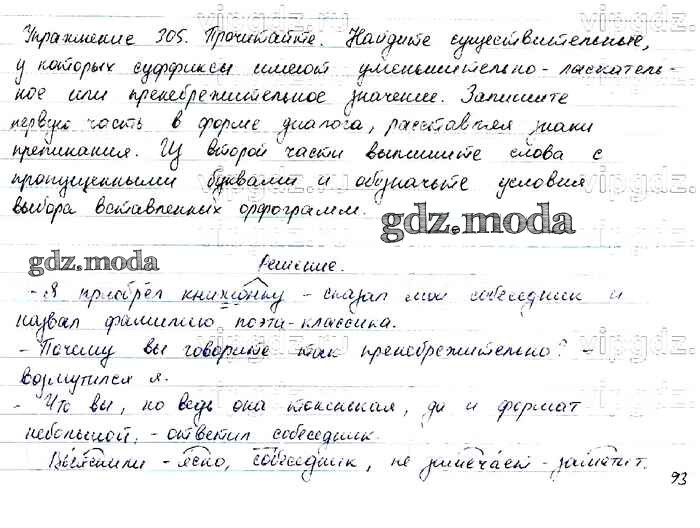 vipgdz.ru
Упражнение 305. Прочитайте. Найдите существительные,
у которых суффиксы имеют уменьшительно-ласкатель-
ное или пренебрежительное значение. Запишите
первую часть в форме диалога, расставляя знаки
препинания. Из второй части выпишите слова с
пропущенными буквами и обозначьте условия
выбора вставленных орфограмм.
gdz.moda
gdz.moda
Решение.
- Я приобрёл книжонку - сказал мой собеседник и
назвал фамилию поэта-классика.
- Почему вы говорите так пренебрежительно? -
возмутился я.
- Что вы, но ведь она тоненькая, да и формат
небольшой, - ответил собеседник.
Выяснили - ясно, собеседник, не замечает - заметит.
93